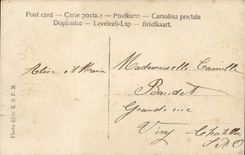 Post card — Carte postale — Postkarte — Cartolina postale
Dopisnice — Levelező-Lap — Briefkaart.
Alice et Maria
Mademoiselle Camille
Baudet
Grande rue
Viry-Chatillon
S & O